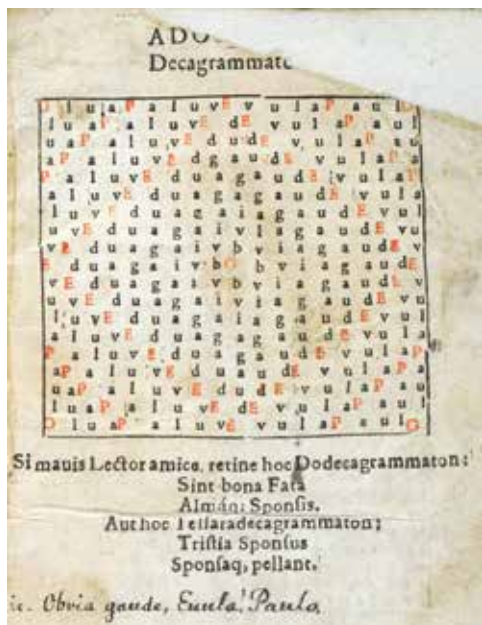 Decagrammat
O l u a P a l u v E v u l a P a u l O
l u a P a l u v E d E v u l a P a u l
u a P a l u v E d u d E v u l a P a u
a P a l u v E d g a u d E v u l a P a
P a l u v E d u a g a u d E v u l a P
a l u v E d u a g a g a u d E v u l a
l u v E d u a g a i a g a u d E v u l
u v E d u a g a i v l a g a u d E v u
v E d u a g a i v b v i a g a u d E v
E d u a g a i v b O b v i a g a u d E
v E d u a g a i v b v i a g a u d E v
u v E d u a g a i v i a g a u d E v u
l u v E d u a g a i a g a u d E v u l
a l u v E d u a g a g a u d E v u l a
P a l u v E d u a g a u d E v u l a P
a P a l u v E d u a u d E v u l a P a
u a P a l u v E d u d E v u l a P a u
l u a P a l u v E d E v u l a P a u l
O l u a P a l u v E v u l a P a u l O
Si mauis Lector amice, retine hoc Dodecagrammaton:
Sint bona Fata
Almáq; Sponsis.
Aut hoc Tessaradecagrammaton;
Tristia Sponsus
Sponsaq, pellant.
Obvia gaude, Euula! Paulo,